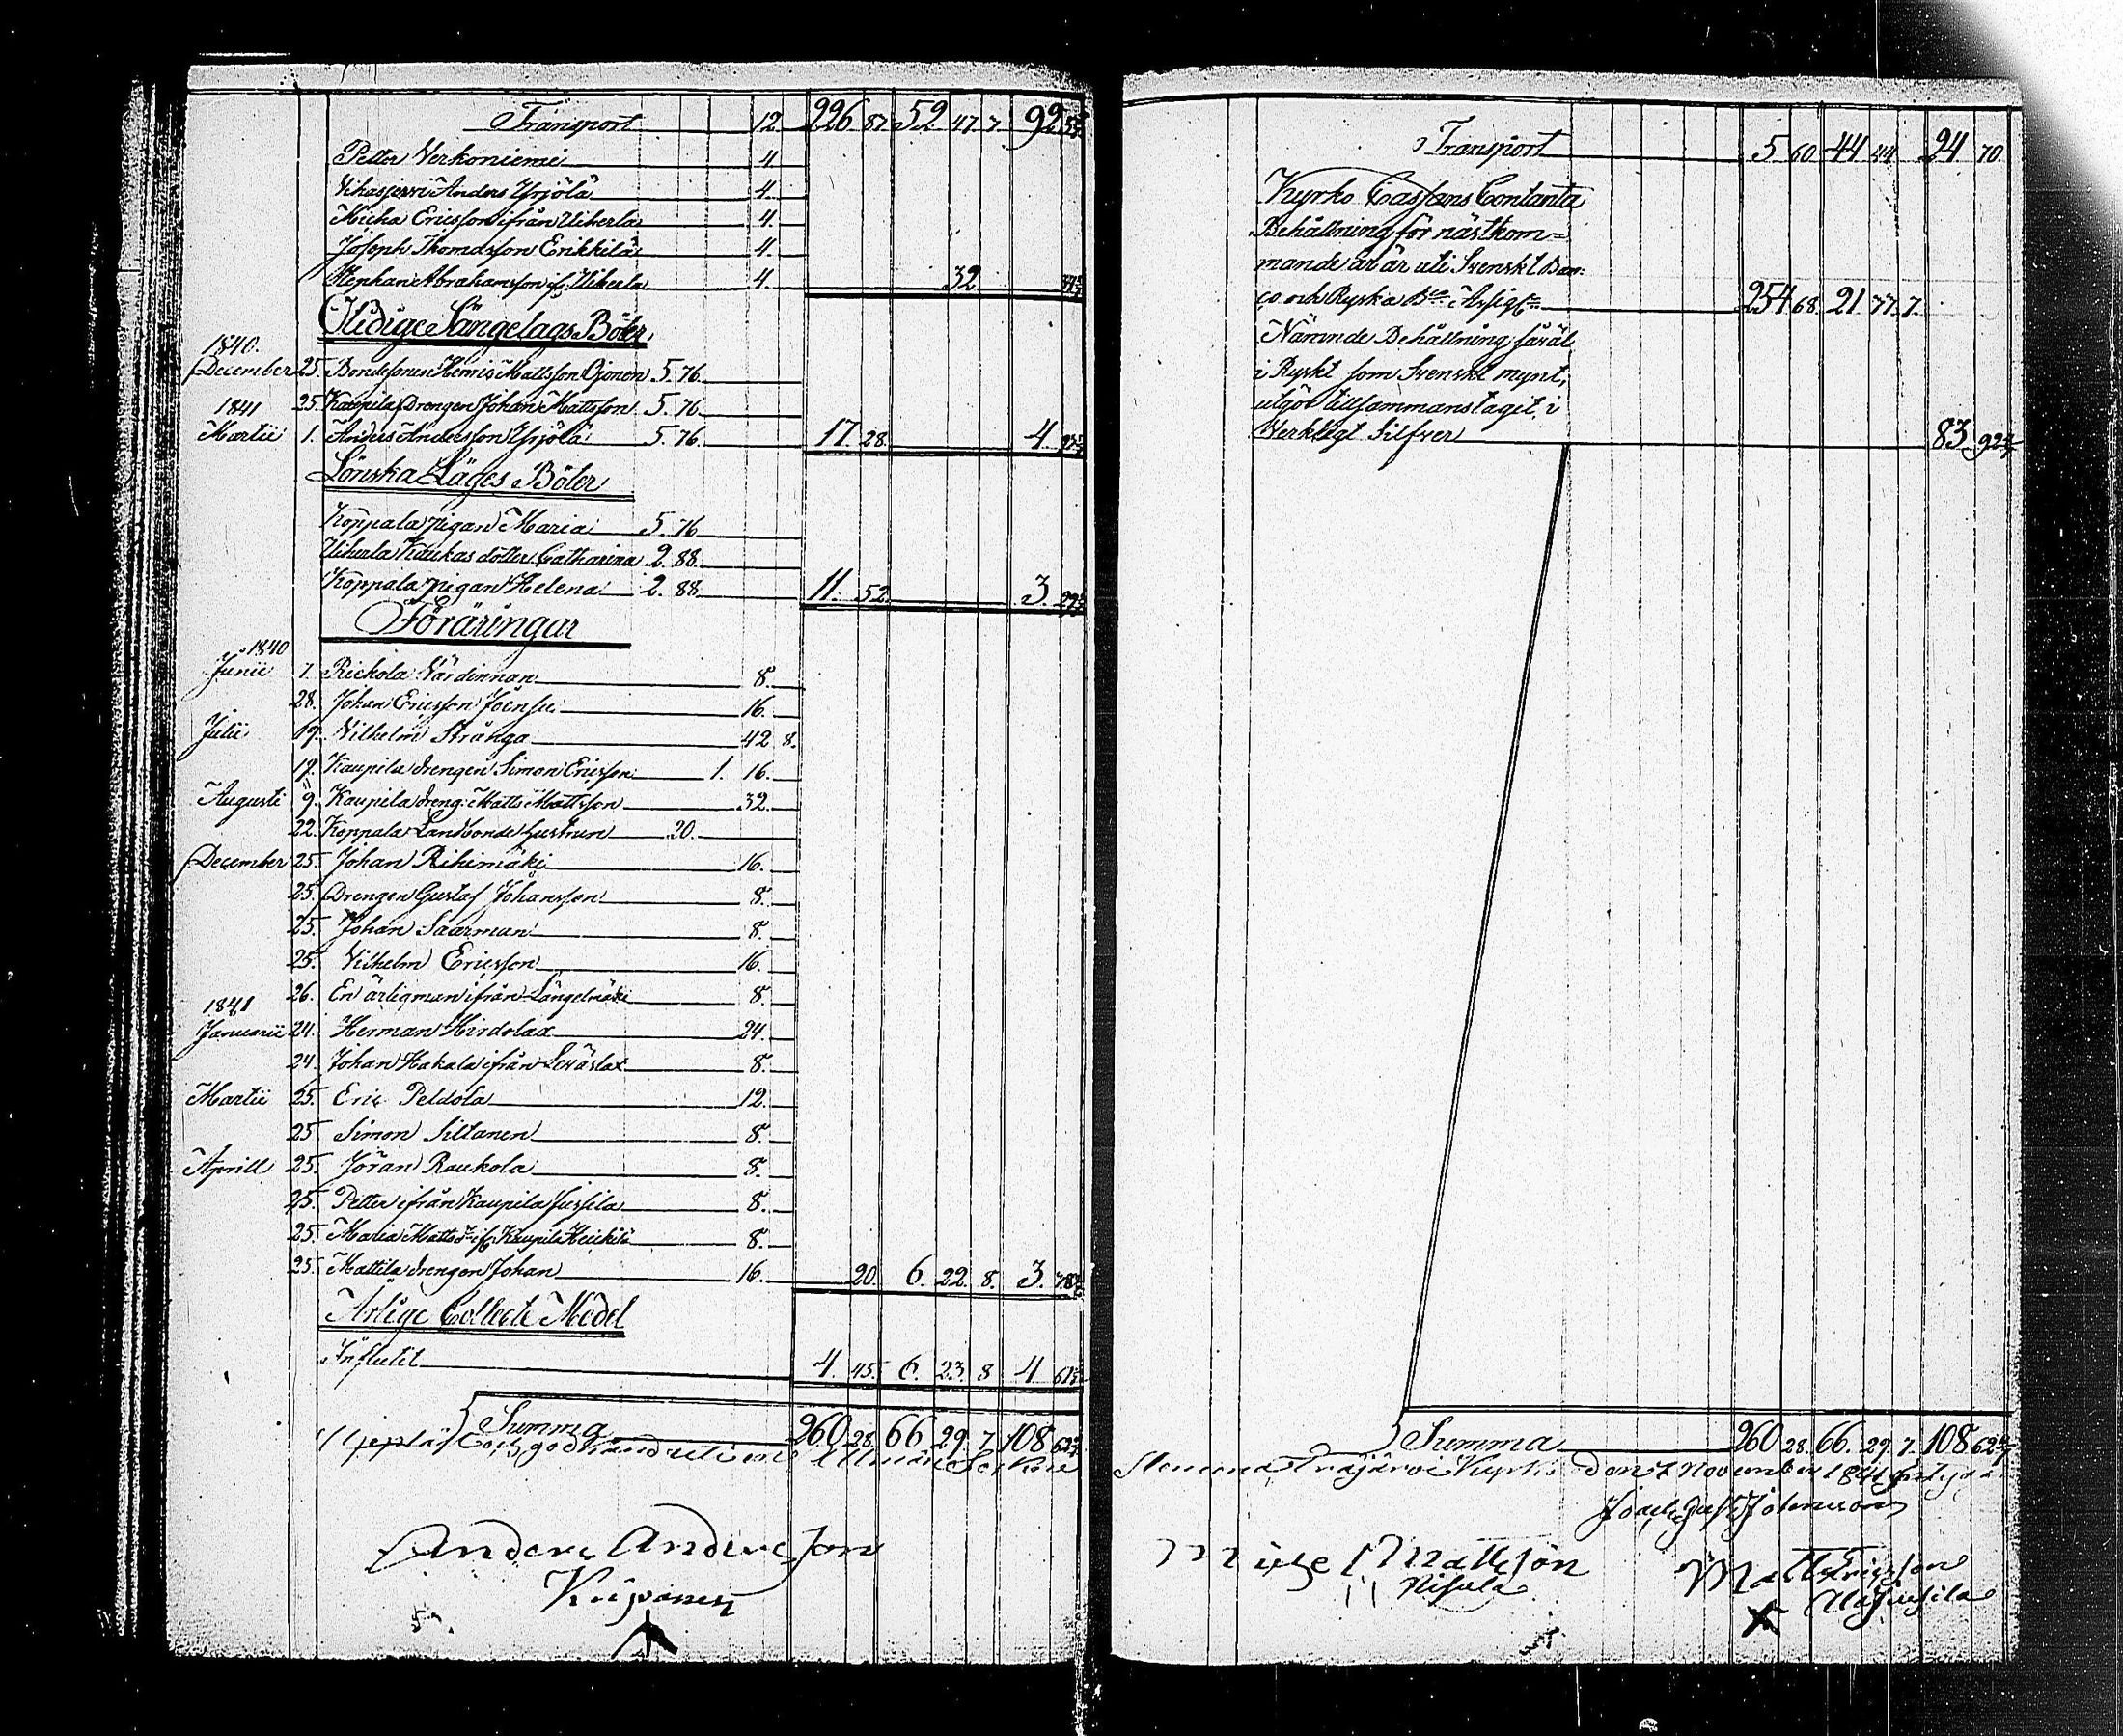 Transport 12. 226. 87. 52. 47. 7. 92
Petter Verkoniemi 4
Vihasjervi Anders Yrjölä 4.
Micha Ericsson ifrån Uiherla 4.
Joseph Thomasson Erikkilä 4.
Stephan Abrahamsson if. Uiherla 4. 32
Otidige Sängelags Böter
1840.
December 25. Bondesonen Henric Mattsson Ojonen 5. 76.
25. Kaupila Drengen Johan Mattsson 5. 76.
1841
Martii 1. Anders Andersson Yrjölä 5. 76. 17. 28. 4.
Lönska Läges Böter
Koppala pigan Maria 5. 76
Uiherla Kaukas dotter Catharina 2. 88.
Koppala pigan Helena 2. 88. 11. 52. 3.
Föräringar
1840
Junii 7. Rickola Värdinnan 8.
28. Johan Ericsson Joensu 16.
Julii 19. Vilhelm Strånga 42 8.
19. Kaupila drengen Simon Ericsson 1. 16.
Augusti 9. Kaupila dreng. Matts Mattsson 32.
22. Koppala Landbonde hustrun 20.
December 25. Johan Rihimäki 16.
25. Drengen Gustaf Johansson 8.
25. Johan Saarman 8.
25. Vilhelm Ericsson 16.
26. En ärlig man ifrån Längelmäki 8.
1841
Januarii 24. Herman Hirdolax 24.
24. Johan Hakala ifrån Leväslax 8.
Martii 25. Eric Peldola 12.
25 Simon Siltanen 8.
Aprill 25. Jöran Raukola 8.
25. Petter ifrån Kaupila Jussila 8.
25. Maria Mattsdr if. Kaupila Heickilä 8.
25. Mattila drengen Johan 16. 20. 6. 22. 8. 3.
Årlige Collecte Medel
Influtit 4. 45. 6. 23. 8. 4
Summa 260. 28. 66. 29. 7. 108
och godkänd uti en
Anders Andersson
Transport 5 60 44 44 24 70
Kyrko Cassans Contanta
Behållning för nästkom=
mande år är uti Svenskt Ban=
co och Ryska Bco Assigt. 254 68. 21. 77. 7.
Nämnde Behållning, såväl
i Ryskt som Svenskt mynt,
utgör tillsammanstaget, i
Verkligt Silfver 83
Summa 260 28. 66. 29. 7. 108
Kyrka den 7 November 1841
Mattsson
Nisula
Matts Ericsson